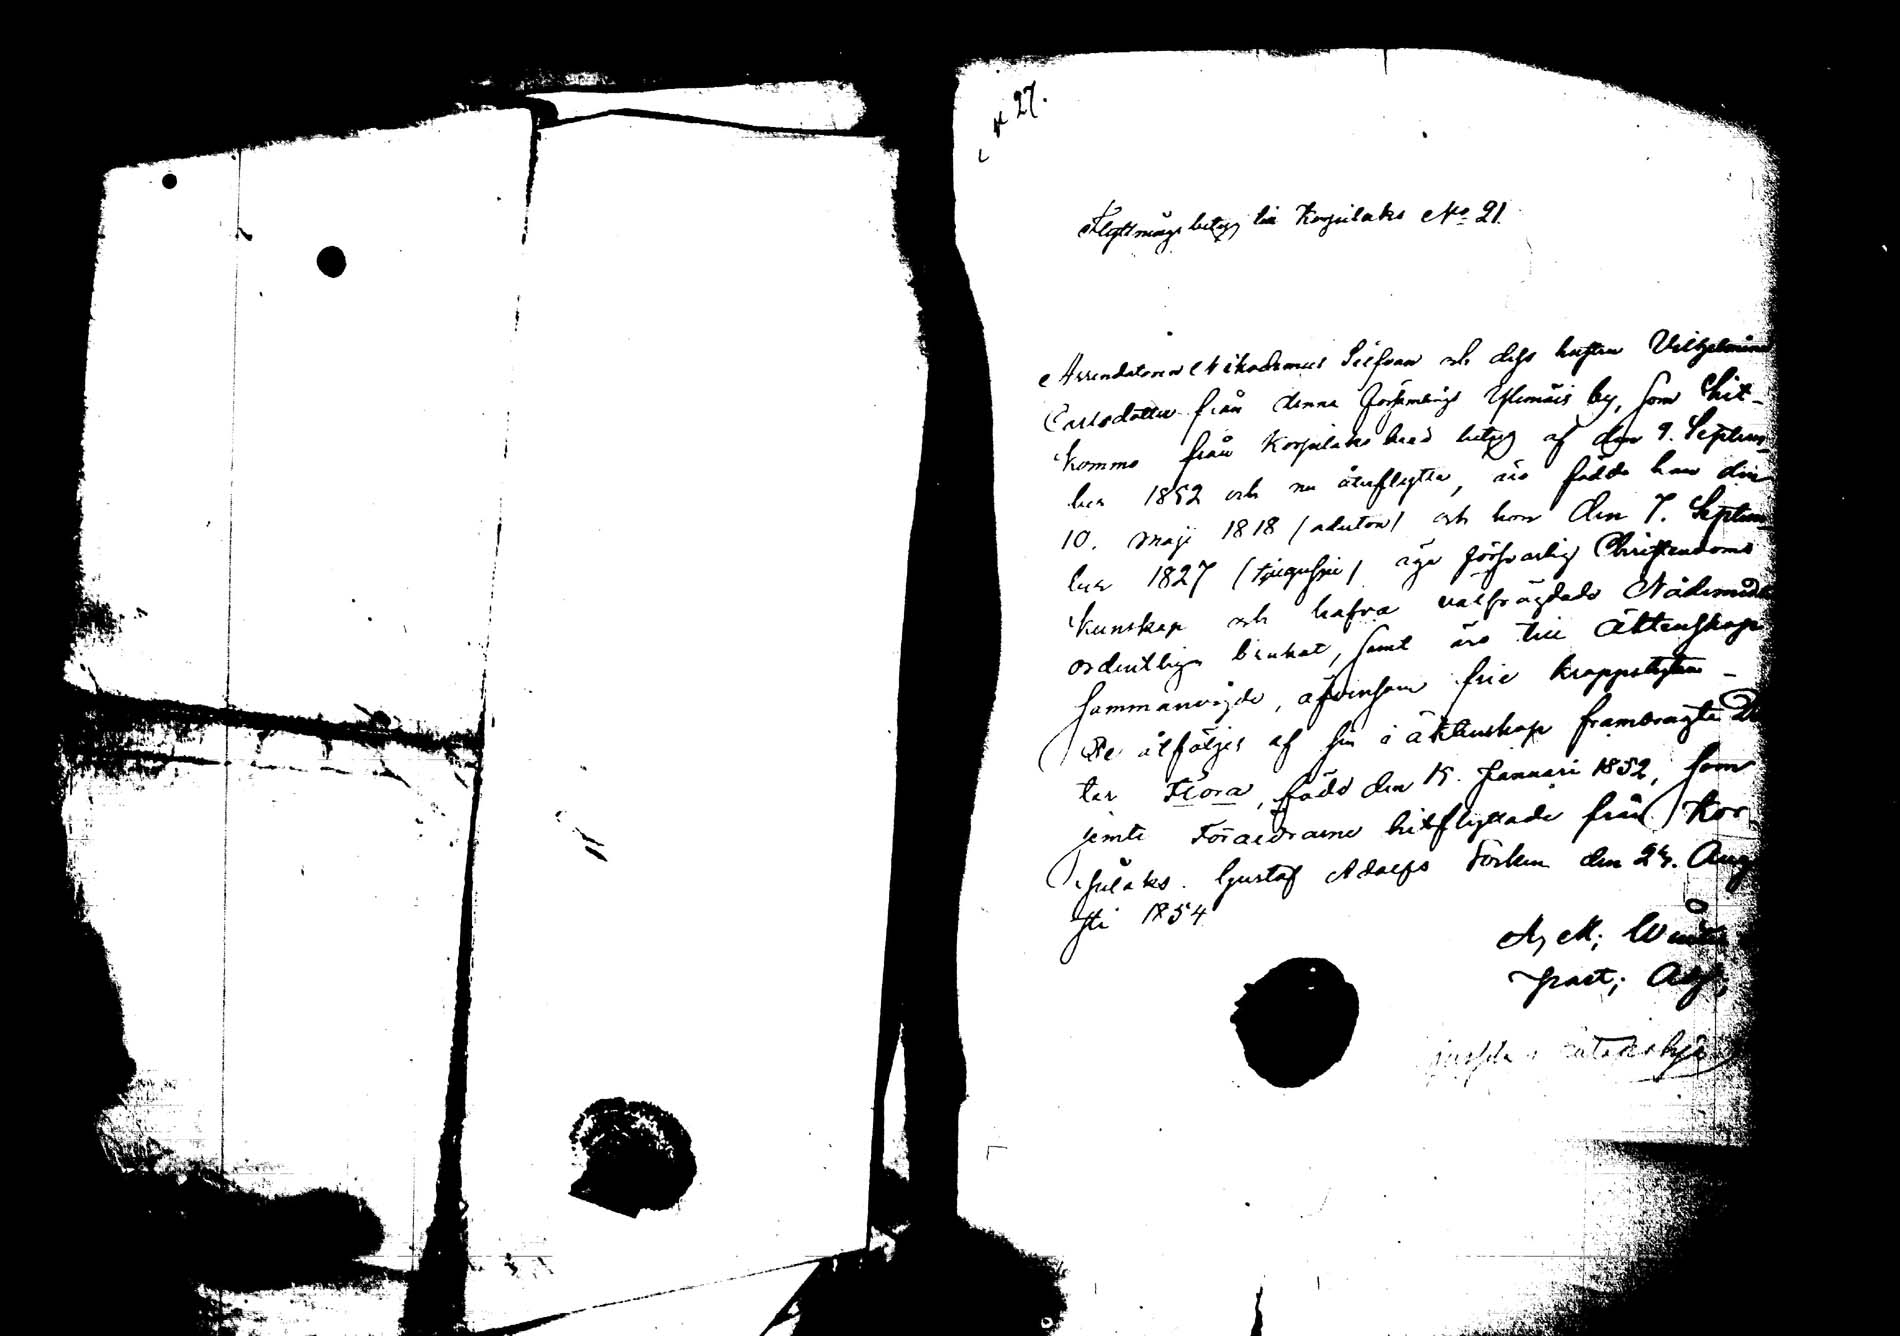 N 27.
Flyttningsbetyg till Korpilaks No 21.
Arrendatoren Nikodemus Silfvan och dess hustru Vilhelmina
Carlsdotter från denna församlings Ylimäis by, som hit-
kommo från Korpilaks med betyg af den 9. Septem-
ber 1852 och nu återflytta, äro födde han den
10. Maji 1818 och hon den 7. Septem-
ber 1827 äga försvarlig Christendoms
kunskap och hafva välfrägdade Nådemedlen
ordentligen brukat, samt äro till äktenskap
sammanvigde, äfvensom frie koppstygten
De åtföljes af sin i äktenskap frambragte Dot
ter Flora, född den 15. Januari 1852, som
jemte Föräldrarne hitflyttade från Kor-
pilaks. Gustaf Adolfs Socken den 24. Aug
sti 1854
Past; Adj;